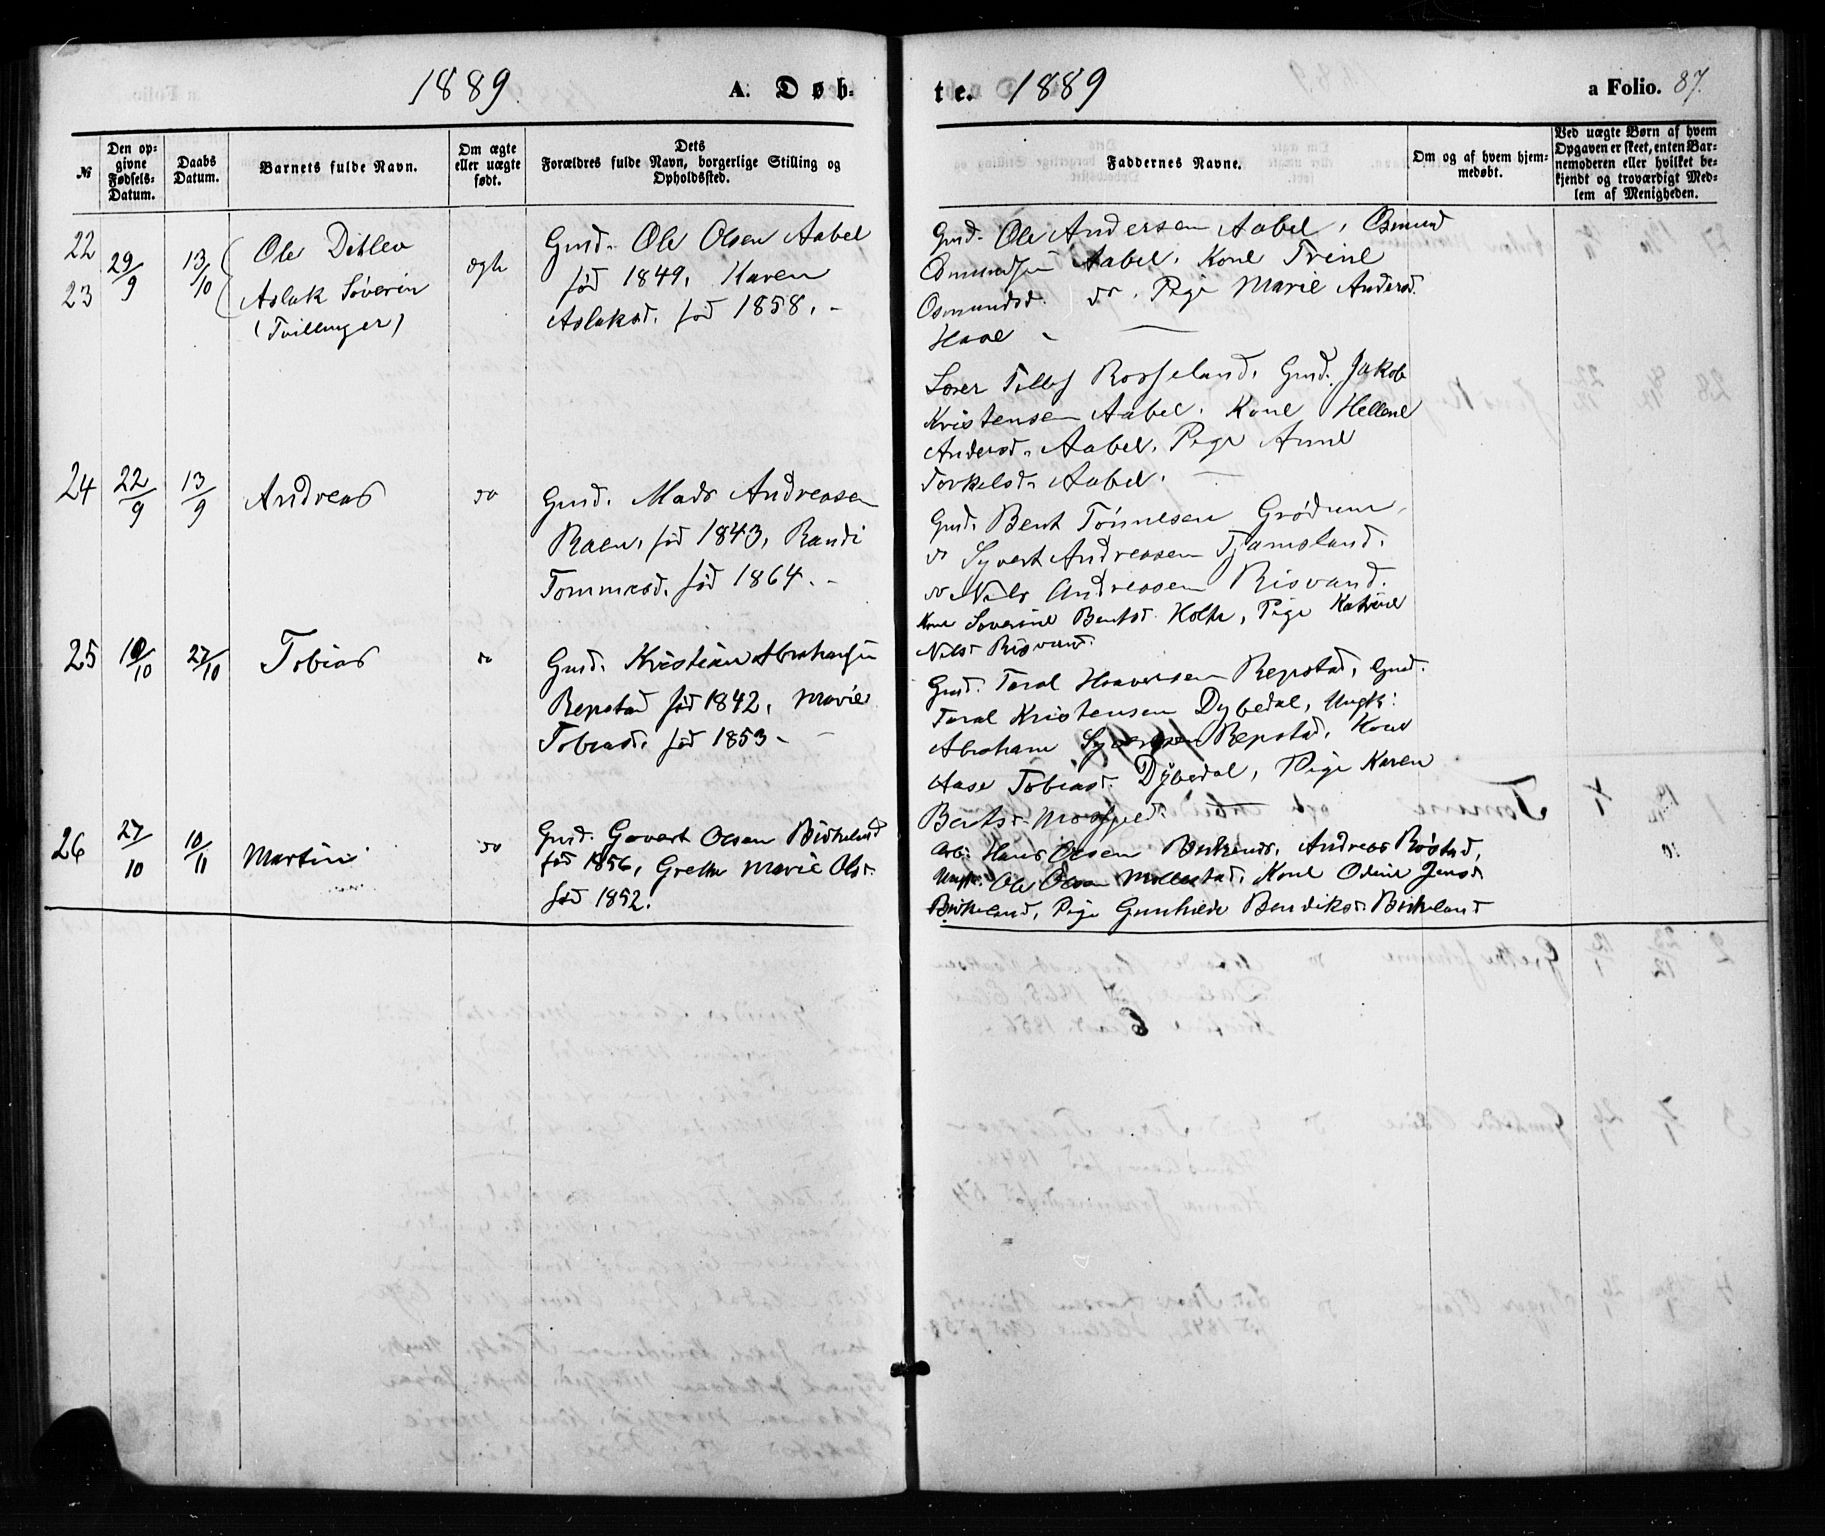 1889 A. Døb-
te. 1889 a Folio. 87.
№
Den op-
givne
Fødsels-
Datum.
Daabs
Datum.
Barnets fulde Navn.
Om ægte
eller uægte
født.
Dets
Forældres fulde Navn, borgerlige Stilling og
Opholdssted.
Faddernes Navne.
Om og af hvem hjem-
medøbt.
Ved uægte Børn af hvem
Opgaven er skeet, enten Bar-
nemoderen eller hvilket be-
kjendt og troværdigt Med-
lem af Menigheden.
22
23
29/9
13/10
Ole Ditlev
Aslak Søverin
(Tvillinger)
ægte
Gmd. Ole Olsen Aabel
fød 1849, Karen
Aslaksd. fød 1858.
Gmd. Ole Andersen Aabel, Osmund
Osmundsen Aabel, Kone Trine
Osmundsd. do, Pige Marie Andersd.
Haae
Tollef Rosseland, Gmd. Jakob
Kristensen Aabel, Kone Hellene
Andersd. Aabel, Pige Anne
Torkelsd. Aabel.
24
22/9
13/9
Andreas
do
Gmd. Mads Andreasen
Raen, fød 1843, Randi
Tommesd. fød 1864.
Gmd. Bent Tønnesen Grødum,
do Syvert Andreasen Tjamsland,
do Nils Andreasen Risvand.
Kone Soverine Bentsd. Holte, Pige Katrine
Nilsd. Risvand.
25
/10
27/10
Tobias
do
Gmd. Kristian Abrahamsen
Repstad fød 1842, Marie
Tobiasd. fød 1853.
Gmd. Taral Haaversen Repstad, Gmd.
Taral Kristensen Dybedal, Ungk:
Abraham Repstad, Kone
Aase Tobiasd. Dybedal, Pige Karen
Bentsd. Mosfjed.
26
27/10
10/11
Martin
do
Gmd. Govert Olsen Birkeland
fød 1856, Grethe Marie Olsd.
fød 1852.
Arb: Hans Olsen Birkeland, Andreas Røstad,
Ungk. Ole Olsen Mollestad, Kone Odine Jensd.
Birkeland, Pige Gunhilde Bendiksd. Birkeland